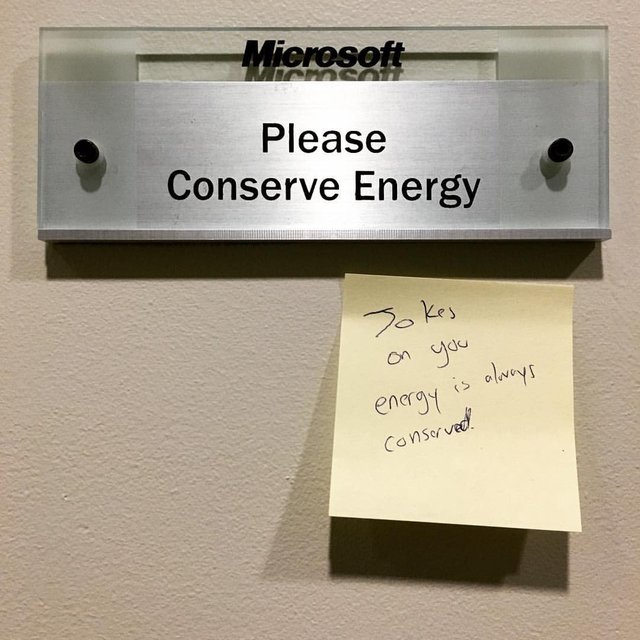 Microsoft
Please
Conserve Energy
Jokes
on you
energy is always
conserved.